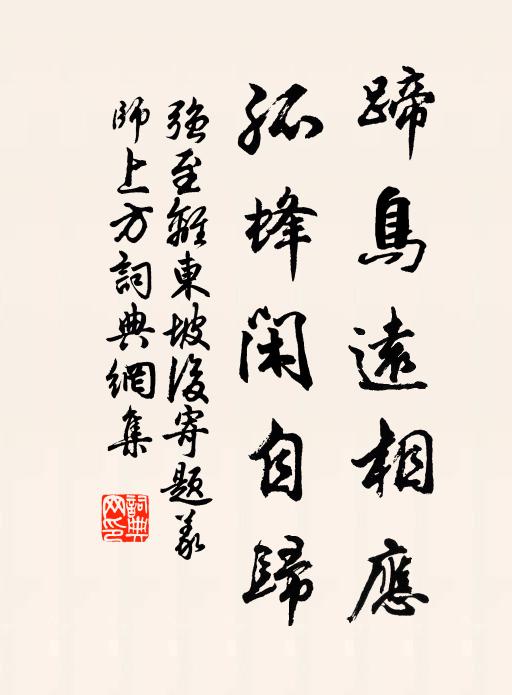 蹄鳥遠相應
孤蜂閑自歸
強至離東坡後寄題義
師上方詞典網集
詞典网印